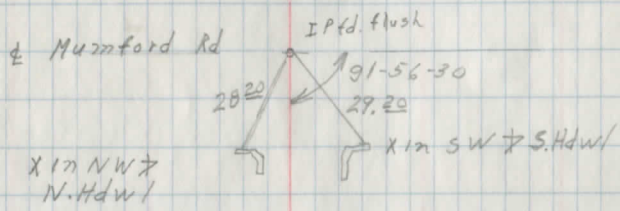 I P fd. flush
℄ Mumford Rd
91-56-30
28 20
29.20
X in SW S. Hdwl
X in NW
N. Hdwl